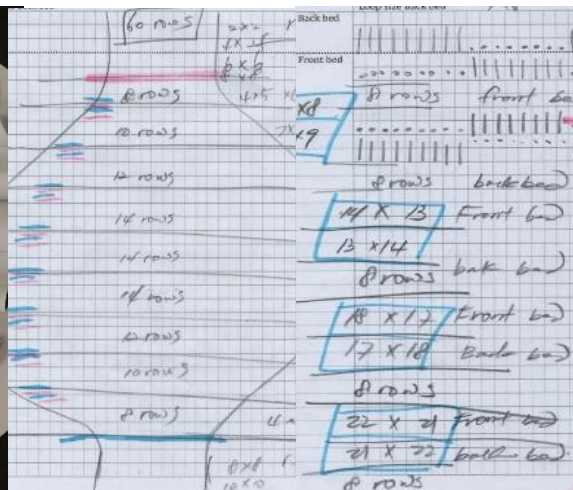 60 rows
2 x 2
6 x 6
8 x 8
8 rows
4 x 5
10 rows
12 rows
14 rows
14 rows
14 rows
12 rows
10 rows
8 rows
8 x 8
10 x 10
Loop size back bed
Back bed
Front bed
8 rows
x8
x9
8 rows back bed
14 X 13 Front bed
13 x 14
8 rows bak bed
18 x 17 Front bed
17 x 18 Back bed
8 rows
22 x 21 Front bed
21 x 22 back bed
8 rows